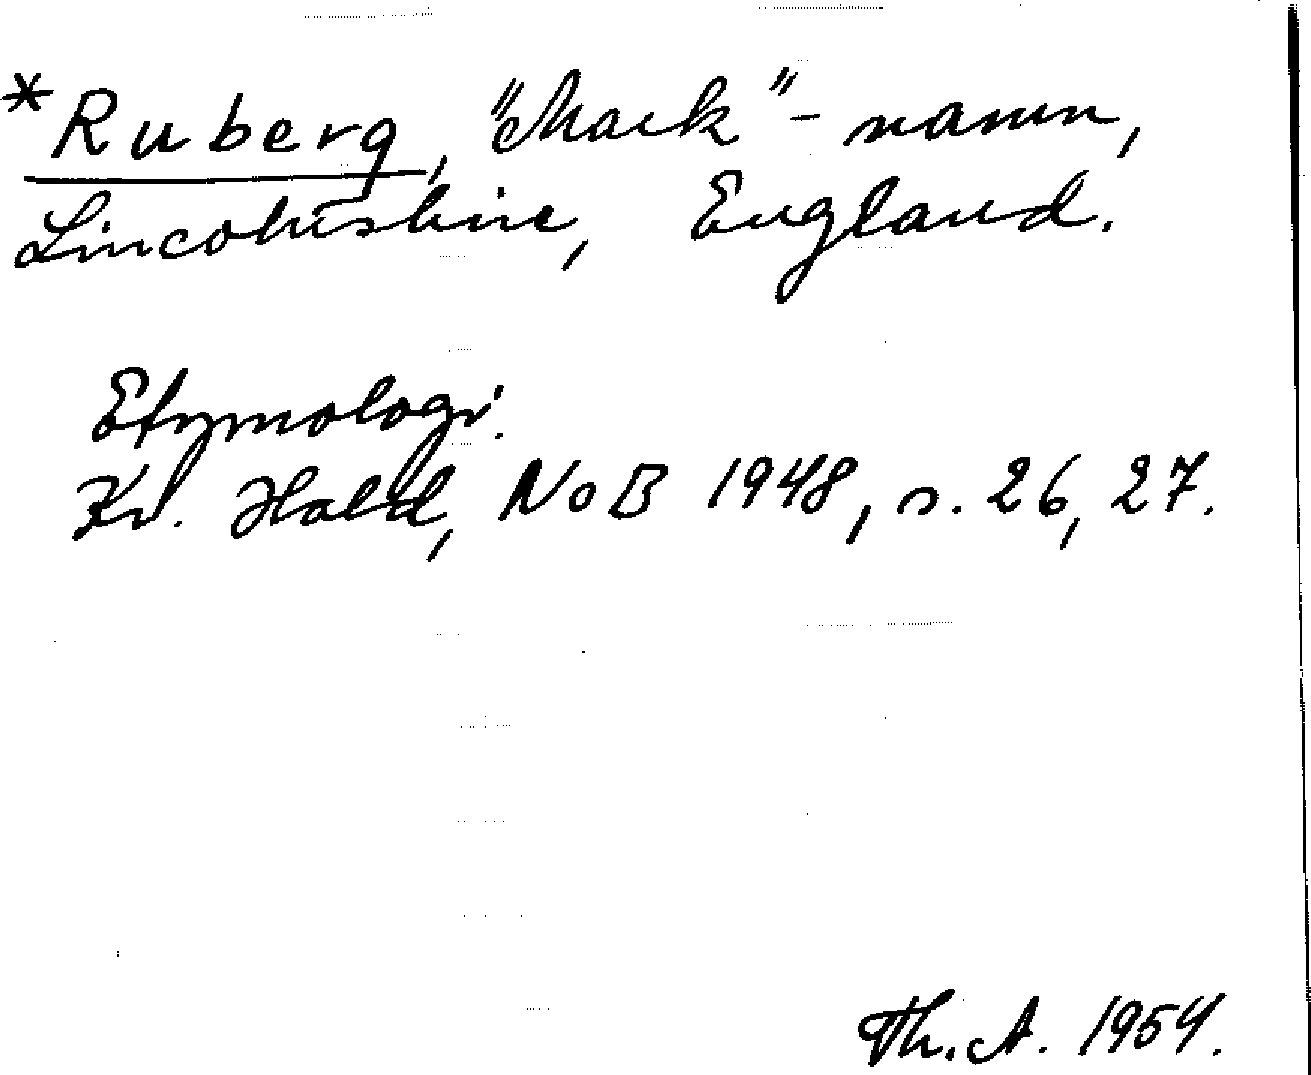 *Ruberg, "Mark"-namn,
Lincolnshire, England.
Etymologi.
Kr. Hald, NoB 1948, s. 26, 27.
Th. A. 1954.